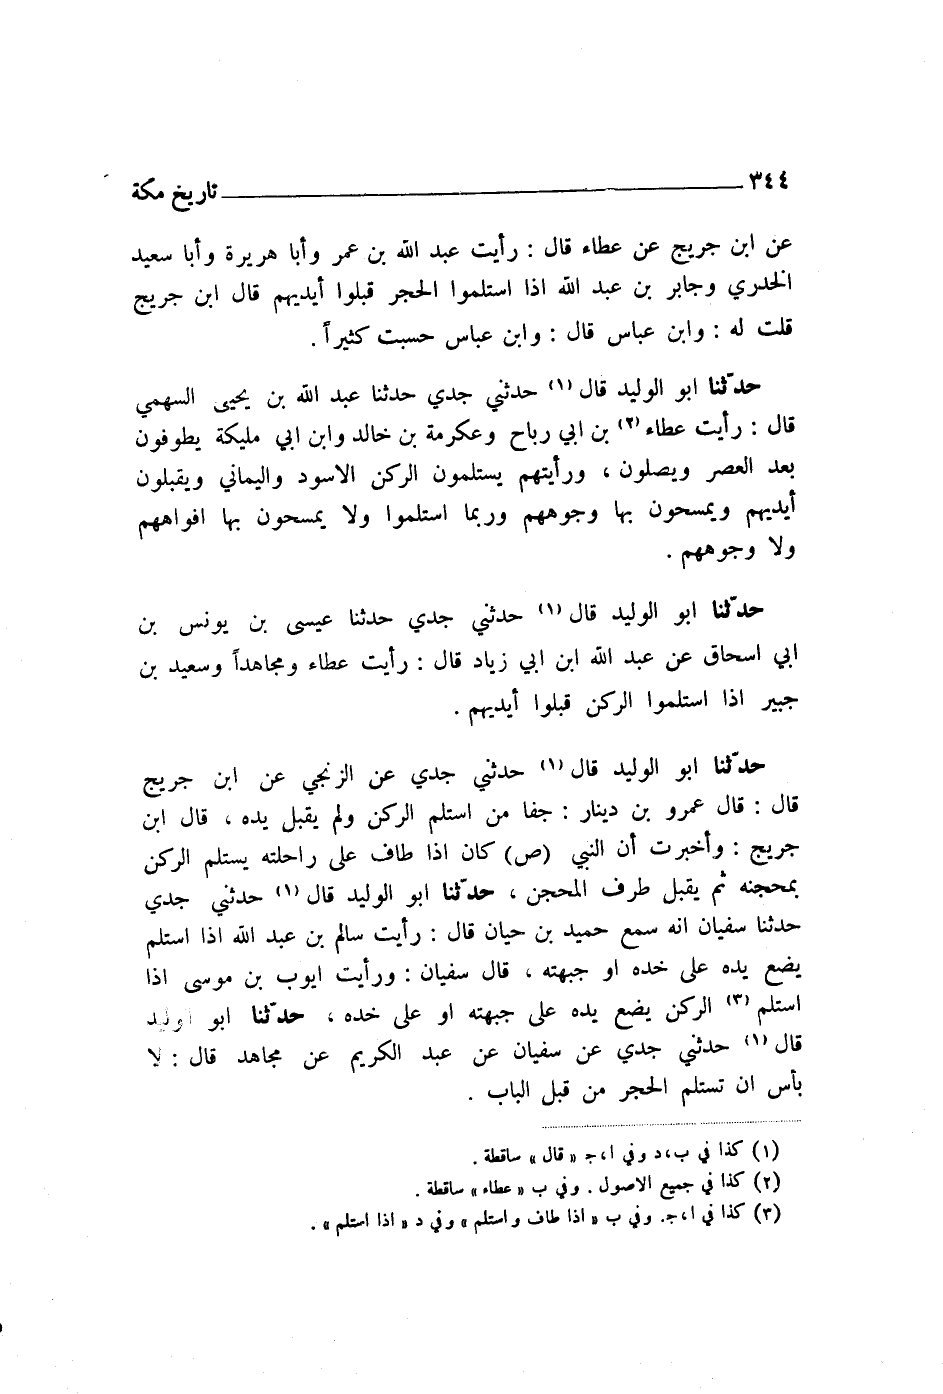 ٣٤٤ تاريخ مكة
عن ابن جريج عن عطاء قال : رأيت عبد الله بن عمر وأبا هريرة وأبا سعيد
الخدري وجابر بن عبد الله اذا استلموا الحجر قبلوا أيديهم قال ابن جريج
قلت له : وابن عباس قال : وابن عباس حسبت كثيراً .
حدّثنا ابو الوليد قال (١) حدثني جدي حدثنا عبد الله بن يحيى السهمي
قال : رأيت عطاء (٢) بن ابي رباح وعكرمة بن خالد وابن ابي مليكة يطوفون
بعد العصر ويصلون ، ورأيتهم يستلمون الركن الاسود واليماني ويقبلون
أيديهم ويمسحون بها وجوههم وربما استلموا ولا يمسحون بها افواههم
ولا وجوههم .
حدّثنا ابو الوليد قال (١) حدثني جدي حدثنا عيسى بن يونس بن
ابي اسحاق عن عبد الله ابن ابي زياد قال : رأيت عطاء ومجاهداً وسعيد بن
جبير اذا استلموا الركن قبلوا أيديهم .
حدّثنا ابو الوليد قال (١) حدثني جدي عن الزنجي عن ابن جريج
قال : قال عمرو بن دينار : جفا من استلم الركن ولم يقبل يده ، قال ابن
جريج : وأخبرت أن النبي (ص) كان اذا طاف على راحلته يستلم الركن
بمحجنه ثم يقبل طرف المحجن ، حدّثنا ابو الوليد قال (١) حدثني جدي
حدثنا سفيان انه سمع حميد بن حيان قال : رأيت سالم بن عبد الله اذا استلم
يضع يده على خده او جبهته ، قال سفيان : ورأيت ايوب بن موسى اذا
استلم (٣) الركن يضع يده على جبهته او على خده ، حدّثنا ابو الوليد
قال (١) حدثني جدي عن سفيان عن عبد الكريم عن مجاهد قال : لا
بأس ان تستلم الحجر من قبل الباب .
(١) كذا في ب،د وفي ا،ج «قال» ساقطة .
(٢) كذا في جميع الاصول . وفي ب «عطاء» ساقطة .
(٣) كذا في ا،ج. وفي ب «اذا طاف واستلم» وفي د «اذا استلم» .